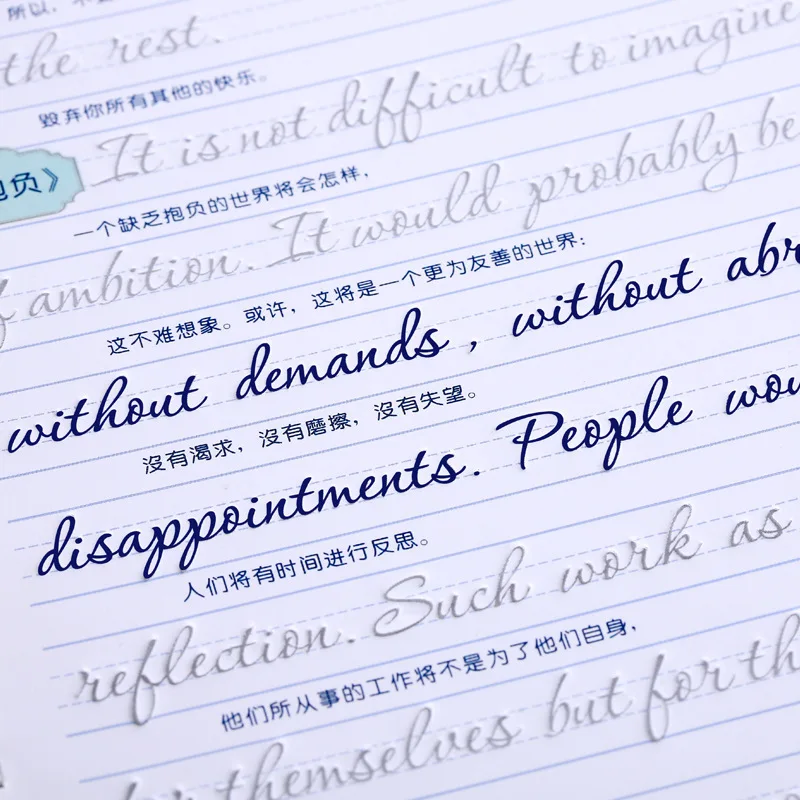 所以，
the rest.
毁弃你所有其他的快乐。
It is not difficult to imagine
负》
一个缺乏抱负的世界将会怎样，
ambition. It would probably be
这不难想象。或许，这将是一个更为友善的世界：
without demands , without abr
沒有渴求，沒有磨擦，沒有失望。
disappointments. People wou
人们将有时间进行反思。
reflection. Such work as
他们所从事的工作将不是为了他们自身，
themselves but for th